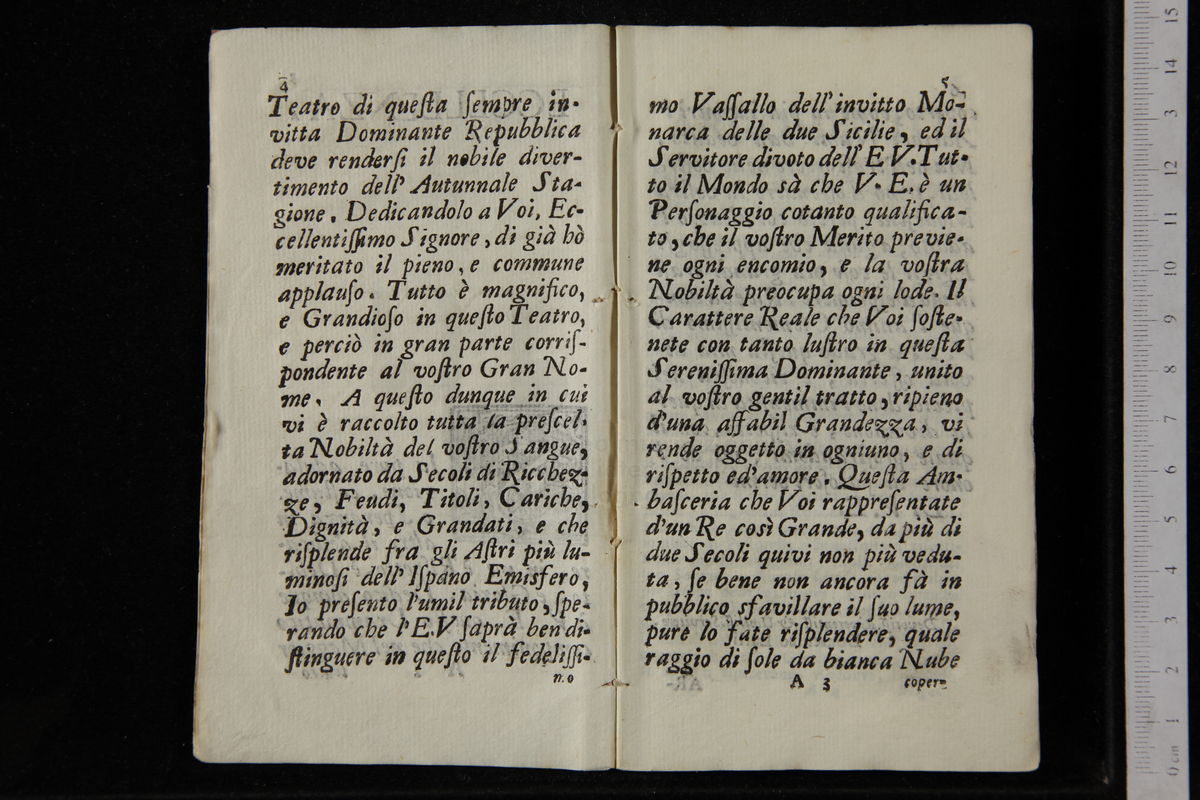 4
Teatro di queſta ſempre in-
vitta Dominante Repubblica
deve renderſi il nobile diver-
timento dell' Autunnale Sta-
gione. Dedicandolo a Voi, Ec-
cellentiſſimo Signore, di già hò
meritato il pieno, e commune
applauſo. Tutto è magnifico,
e Grandioſo in queſto Teatro,
e perciò in gran parte corriſ-
pondente al voſtro Gran No-
me. A queſto dunque in cui
vi è raccolto tutta la preſcel-
ta Nobiltà del voſtro Sangue,
adornato da Secoli di Ricchez-
ze, Feudi, Titoli, Cariche,
Dignità, e Grandati, e che
riſplende fra gli Aſtri più lu-
minoſi dell' Iſpano Emisfero,
Io preſento l'umil tributo, ſpe-
rando che l'E.V ſaprà ben di-
ſtinguere in queſto il fedeliſſi-
mo
5
mo Vaſſallo dell' invitto Mo-
narca delle due Sicilie, ed il
Servitore divoto dell' E V. Tut-
to il Mondo sà che V. E. è un
Perſonaggio cotanto qualifica-
to, che il voſtro Merito previe-
ne ogni encomio, e la voſtra
Nobiltà preocupa ogni lode. Il
Carattere Reale che Voi ſoſte-
nete con tanto luſtro in queſta
Sereniſſima Dominante, unito
al voſtro gentil tratto, ripieno
d'una affabil Grandezza, vi
rende oggetto in ogniuno, e di
riſpetto ed'amore. Queſta Am-
baſceria che Voi rappreſentate
d'un Re così Grande, da più di
due Secoli quivi non più vedu-
ta, ſe bene non ancora fà in
pubblico sfavillare il ſuo lume,
pure lo fate riſplendere, quale
raggio di ſole da bianca Nube
A 3 coper-
0 cm 1 2 3 4 5 6 7 8 9 10 11 12 3 14 15